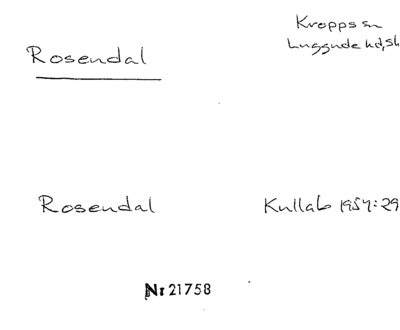 Rosendal
Kropps sn
Luggude hd, Sk
Rosendal
Kullab 1957:29
Nr 21758